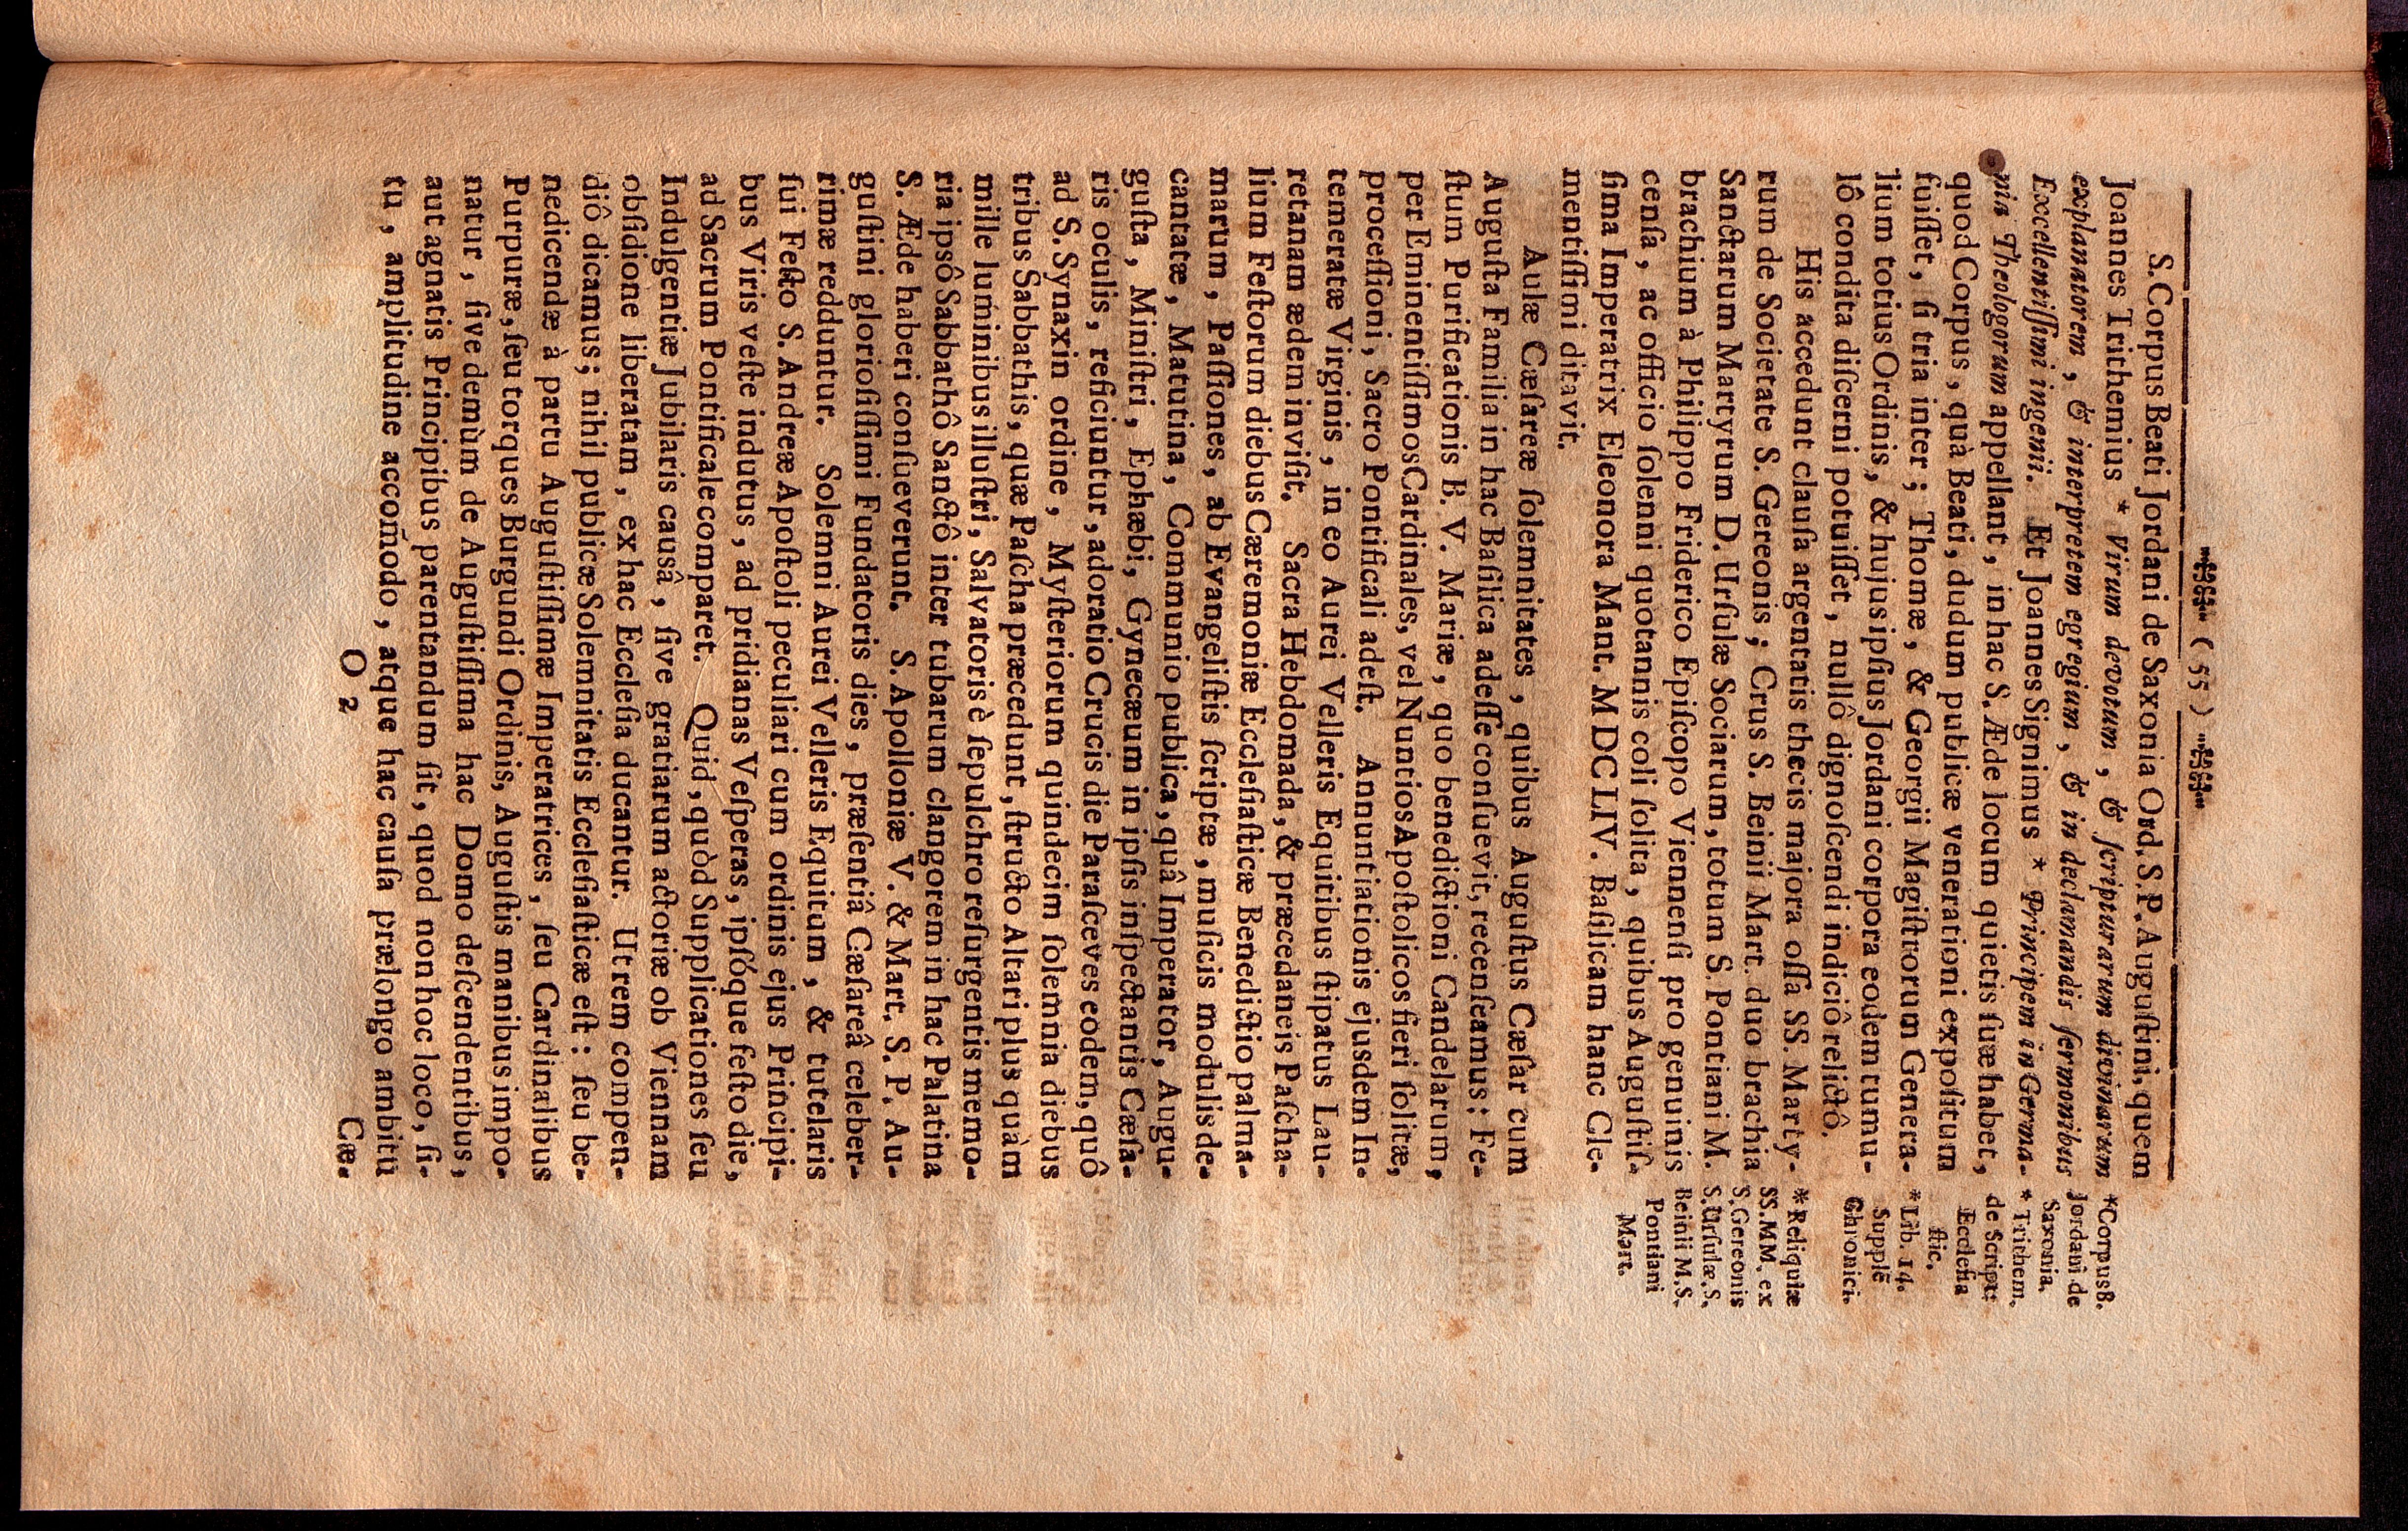 ( 55 )
S. Corpus Beati Jordani de Saxonia Ord. S. P. Auguſtini, quem
Joannes Trithemius * Virum devotum, & ſcripturarum divinarum
explanatorem, & interpretem egregium, & in declamandis ſermonibus
Excellentiſſimi ingenii. Et Joannes Signimus * Principem in Germa-
nia Theologorum appellant, in hac S. Æde locum quietis ſuæ habet,
quod Corpus, quà Beati, dudum publicæ venerationi expoſitum
fuiſſet, ſi tria inter; Thomæ, & Georgii Magiſtrorum Genera-
lium totius Ordinis, & hujus ipſius Jordani corpora eodem tumu-
lô condita diſcerni potuiſſet, nullô dignoſcendi indiciô relictô.
His accedunt clauſa argentatis thecis majora oſſa SS. Marty-
rum de Societate S. Gereonis; Crus S. Beinii Mart. duo brachia
Sanctarum Martyrum D. Urſulæ Sociarum, totum S. Pontiani M.
brachium à Philippo Friderico Epiſcopo Viennenſi pro genuinis
cenſa, ac officio ſolenni quotannis coli ſolita, quibus Auguſtiſ-
ſima Imperatrix Eleonora Mant. M DC LIV. Baſilicam hanc Cle-
mentiſſimi ditavit.
Aulæ Cæſareæ ſolemnitates, quibus Auguſtus Cæſar cum
Auguſta Familia in hac Baſilica adeſſe conſuevit, recenſeamus: Fe-
ſtum Purificationis B. V. Mariæ, quo benedictioni Candelarum,
per Eminentiſſimos Cardinales, vel Nuntios Apoſtolicos fieri ſolitæ,
proceſſioni, Sacro Pontificali adeſt. Annuntiationis ejusdem In-
temeratæ Virginis, in eo Aurei Velleris Equitibus ſtipatus Lau-
retanam ædem inviſit. Sacra Hebdomada, & præcedaneis Paſcha-
lium Feſtorum diebus Cæremoniæ Eccleſiaſticæ Benedictio palma-
marum, Paſſiones, ab Evangeliſtis ſcriptæ, muſicis modulis de-
cantatæ, Matutina, Communio publica, quâ Imperator, Augu-
guſta, Miniſtri, Ephæbi, Gynecæum in ipſis inſpectantis Cæſa-
ris oculis, reficiuntur, adoratio Crucis die Paraſceves eodem, quô
ad S. Synaxin ordine, Myſteriorum quindecim ſolemnia diebus
tribus Sabbathis, quæ Paſcha præcedunt, ſtructo Altari plus quàm
mille luminibus illuſtri, Salvatoris è ſepulchro reſurgentis memo-
ria ipsô Sabbathô Sanctô inter tubarum clangorem in hac Palatina
S. Æde haberi conſueverunt. S. Apolloniæ V. & Mart. S. P. Au-
guſtini glorioſiſſimi Fundatoris dies, præſentiâ Cæſareâ celeber-
rimæ redduntur. Solemni Aurei Velleris Equitum, & tutelaris
ſui Feſto S. Andreæ Apoſtoli peculiari cum ordinis ejus Principi-
bus Viris veſte indutus, ad pridianas Veſperas, ipſóque feſto die,
ad Sacrum Pontificale comparet. Quid, quòd Supplicationes ſeu
Indulgentiæ Jubilaris causâ, ſive gratiarum actoriæ ob Viennam
obſidione liberatam, ex hac Eccleſia ducantur. Ut rem compen-
diô dicamus; nihil publicæ Solemnitatis Eccleſiaſticæ eſt: ſeu be-
nedicendæ à partu Auguſtiſſimæ Imperatrices, ſeu Cardinalibus
Purpuræ, ſeu torques Burgundi Ordinis, Auguſtis manibus impo-
natur, ſive demùm de Auguſtiſſima hac Domo deſcendentibus,
aut agnatis Principibus parentandum ſit, quod non hoc loco, ſi-
tu, amplitudine accom̄odo, atque hac cauſa prælongo ambitu
O 2
Cæ-
*Corpus B.
Jordani de
Saxonia.
* Trithem.
de Script:
Eccleſia
ſtic.
*Lib. 14.
Supplē
Chronici.
* Reliquiæ
SS. MM. ex
S. Gereonis
S. Urſulæ. S.
Beinii M. S.
Pontiani
Mart.